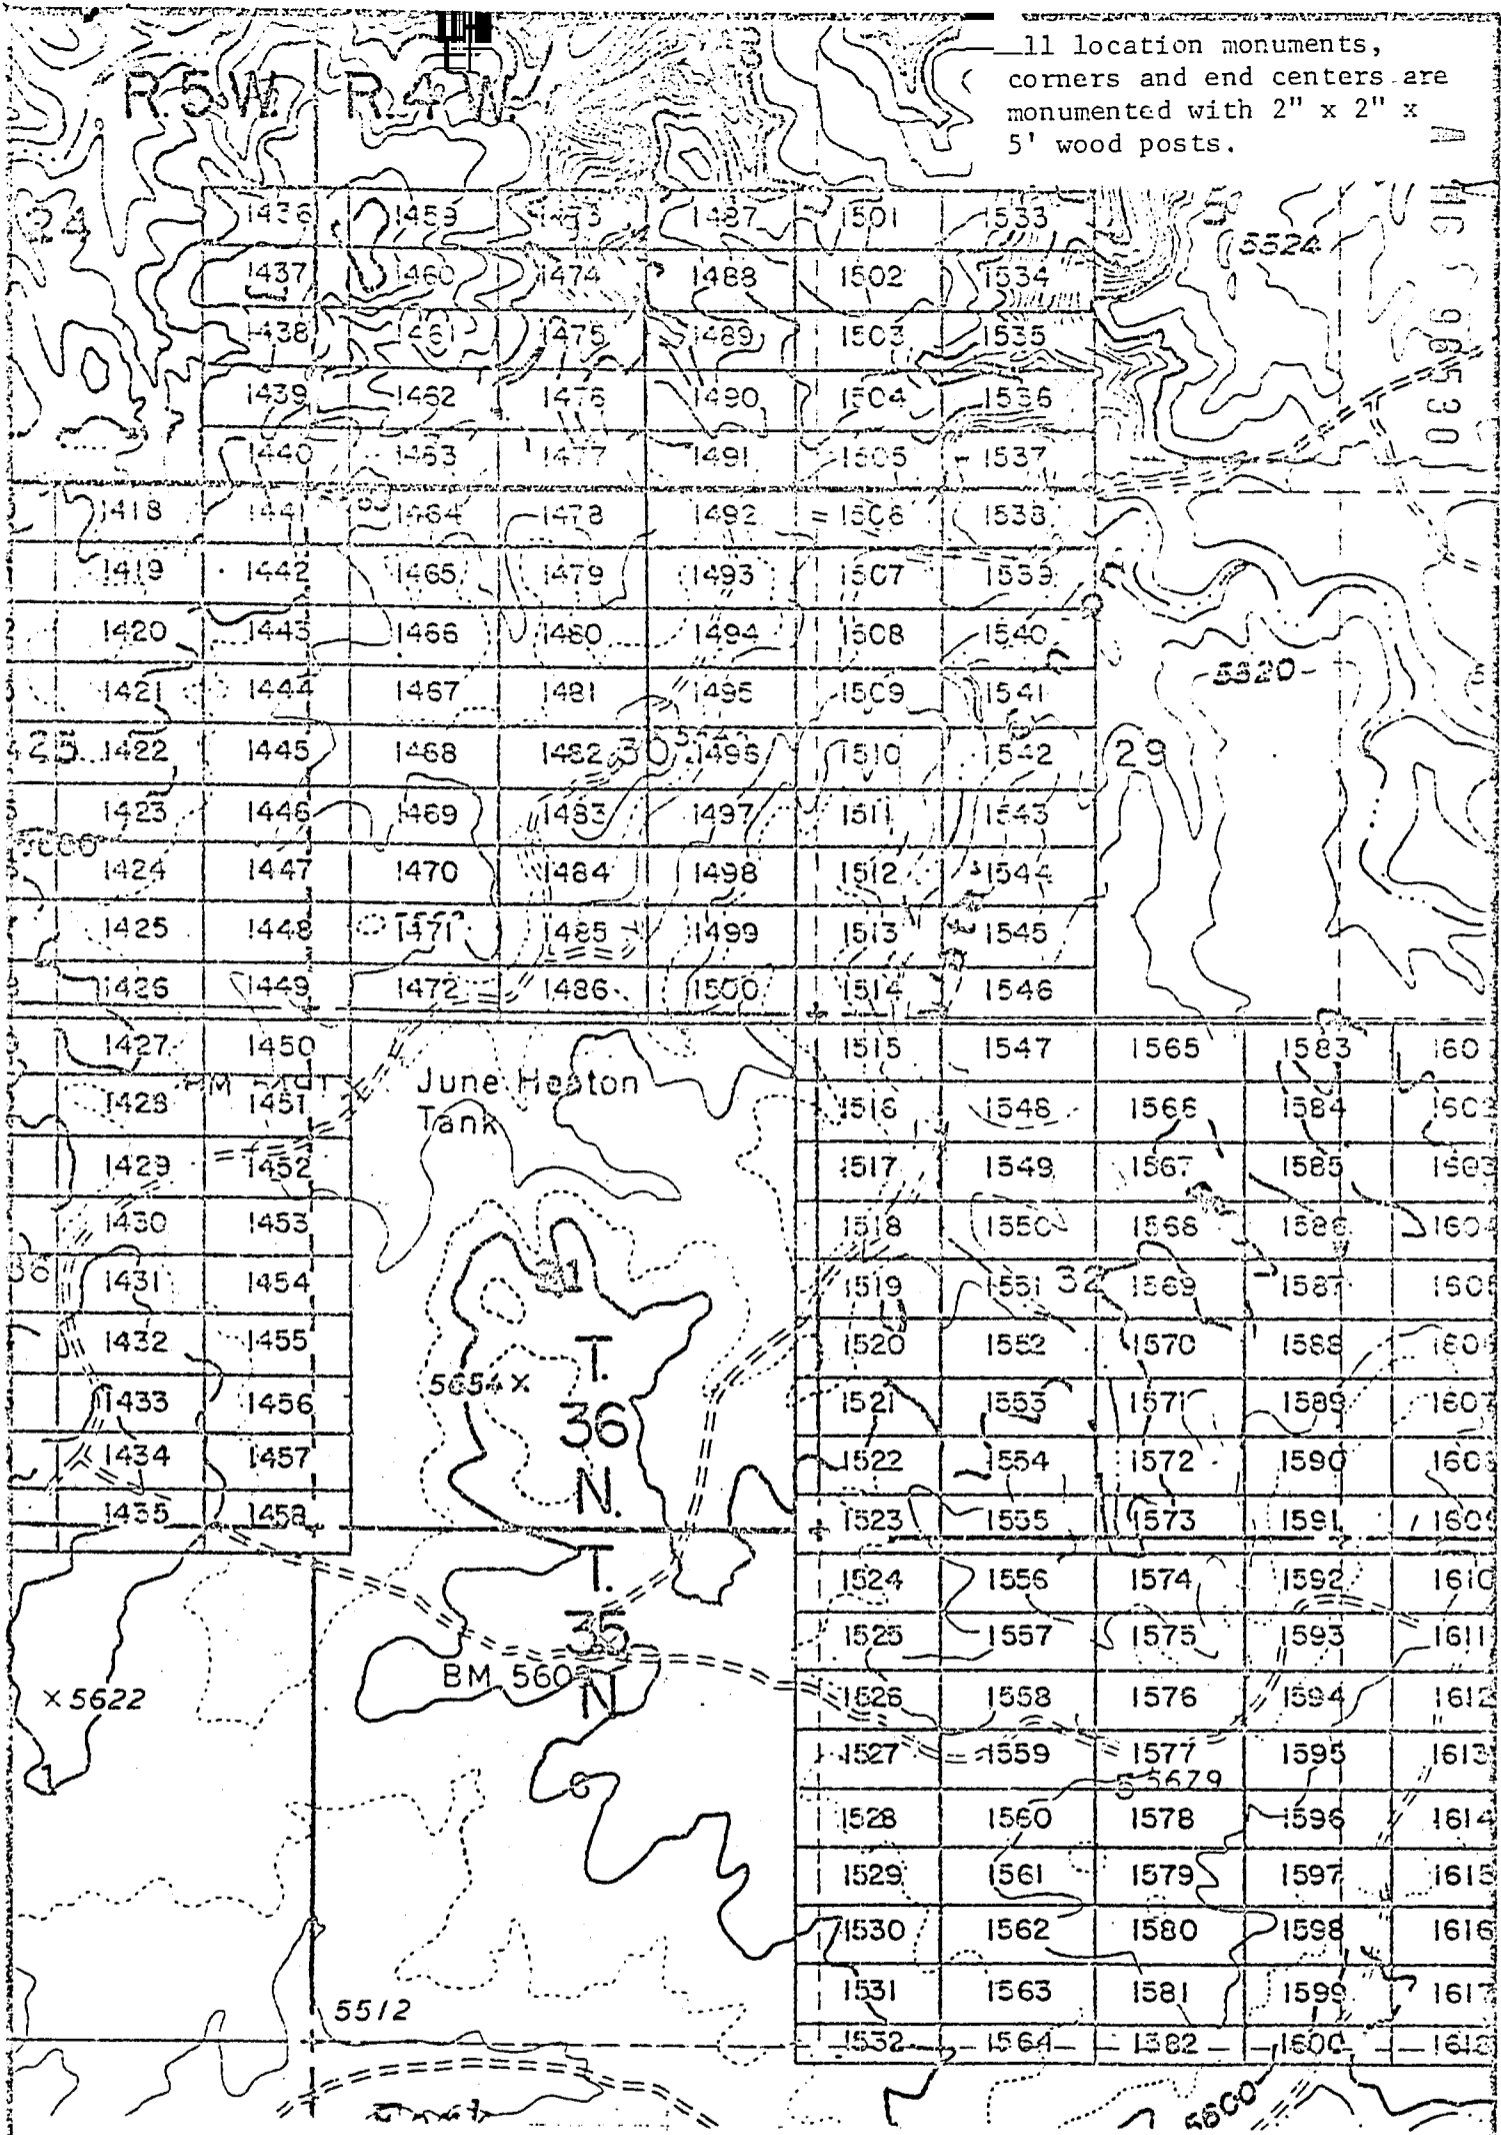 11 location monuments,
corners and end centers are
monumented with 2" x 2" x
5' wood posts.
R.5W. R.4W.
24 1436 1459 1487 1501 1533 5524
1437 1460 1474 1488 1502 1534
1438 1461 1475 1489 1503 1535
1439 1462 1476 1490 1504 1536
1440 1463 1477 1491 1505 1537
1418 1441 1464 1478 1492 1506 1538
1419 1442 1465 1479 1493 1507 1539
1420 1443 1466 1480 1494 1508 1540
1421 1444 1467 1481 1495 1509 1541 5520
25 1422 1445 1468 1482 30 1496 1510 1542 29
1423 1446 1469 1483 1497 1511 1543
1424 1447 1470 1484 1498 1512 1544
1425 1448 1471 1485 1499 1513 1545
1426 1449 1472 1486 1500 1514 1546
1427 1450 1515 1547 1565 1583 160
1428 1451 June Heaton 1516 1548 1566 1584 160
Tank
1429 1452 1517 1549 1567 1585 1603
1430 1453 1518 1550 1568 1586 160
36 1431 1454 31 1519 1551 32 1569 1587 160
1432 1455 T. 1520 1552 1570 1588 160
1433 1456 5654 x 36 1521 1553 1571 1589 1607
1434 1457 N. 1522 1554 1572 1590 160
1435 1458 1523 1555 1573 1591 160
T. 1524 1556 1574 1592 1610
35 1525 1557 1575 1593 1611
x 5622 BM 560 N 1526 1558 1576 1594 1612
1527 1559 1577 1595 1613
6 5 5679
1528 1560 1578 1596 1614
1529 1561 1579 1597 1615
1530 1562 1580 1598 1616
1531 1563 1581 1599 1617
5512
1532 1564 1582 1600 1618
5600
A MC 96530